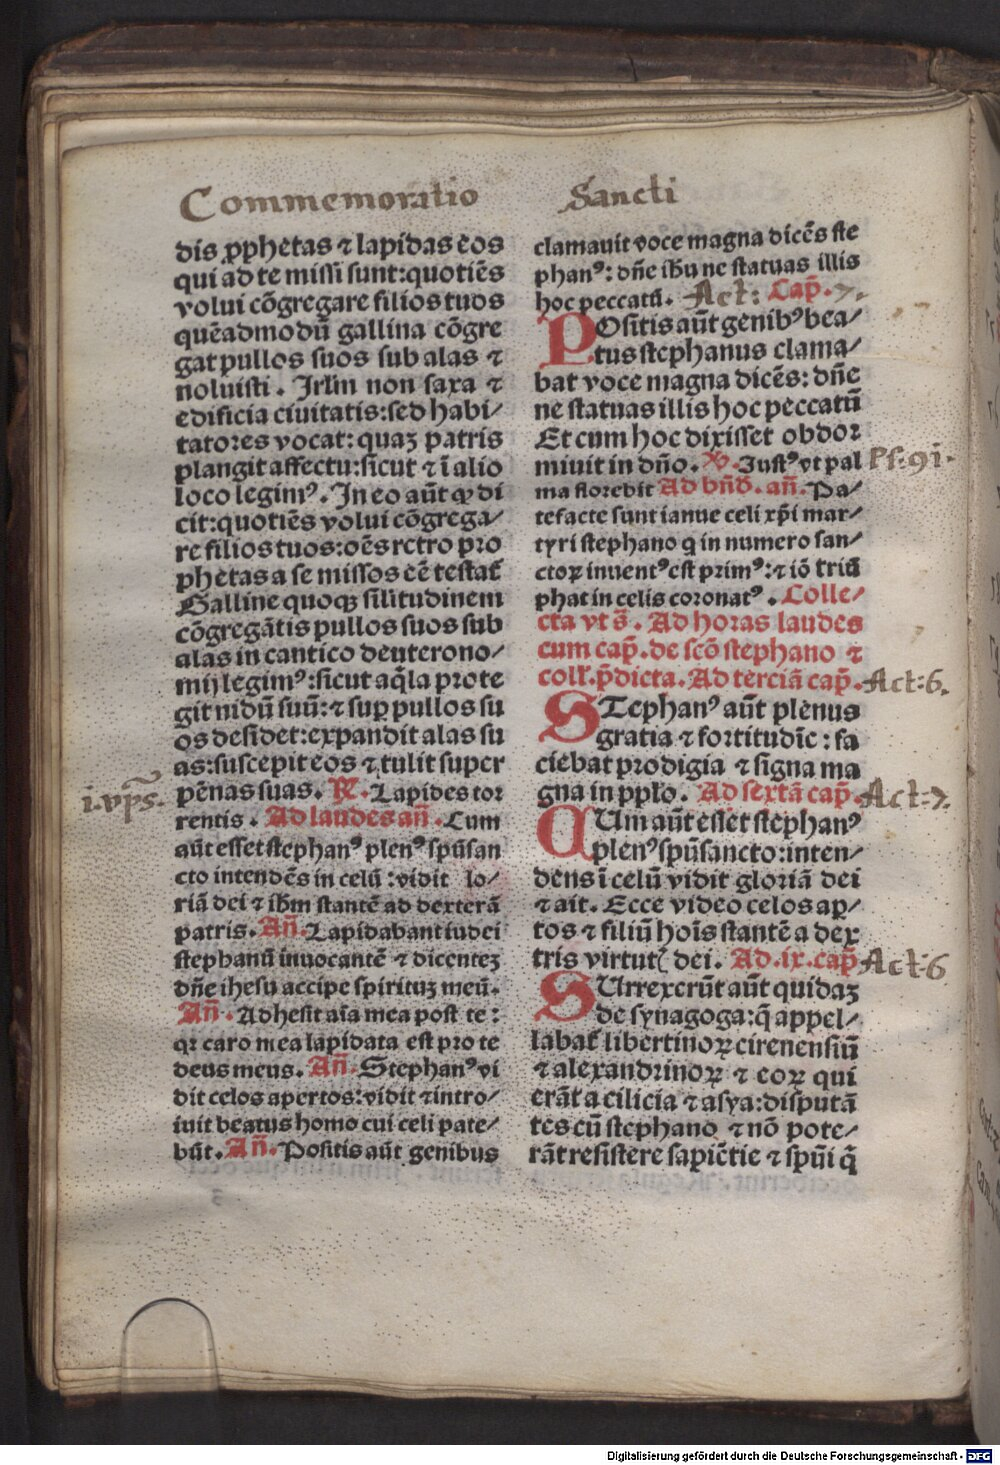 Commemoratio Sancti
dis ꝓphetas ⁊ lapidas eos
qui ad te missi sunt: quotiēs
volui cōgregare filios tuos
quēadmodū gallina cōgre
gat pullos suos sub alas ⁊
noluisti. Jrlm̄ non saxa ⁊
edificia ciuitatis: sed habi/
tatores vocat: quaꝫ patris
plangit affectu: sicut ⁊ ī alio
loco legimꝰ. Jn eo aūt ꝙ di
cit: quotiēs volui cōgrega/
re filios tuos: oēs retro pro
phetas a se missos eē testat᷑
Galline quoqꝫ silitudinem
cōgregātis pullos suos sub
alas in cantico deuterono/
mij legimꝰ: sicut aq̄la prote
git nidū suū: ⁊ suꝑ pullos su
os desidet: expandit alas su
as: suscepit eos ⁊ tulit super
pēnas suas. R̄. Lapides tor
i. vp̄s.
rentis. Ad laudes an̄. Cum
aūt esset stephanꝰ plenꝰ spūsan
cto intendēs in celū: vidit lo/
riā dei ⁊ ihm̄ stantē ad dexterā
patris. An̄. Lapidabant iudei
stephanū inuocantē ⁊ dicenteꝫ
dn̄e ihesu accipe spirituꝫ meū.
An̄. Adhesit aīa mea post te:
qꝛ caro mea lapidata est pro te
deus meus. An̄. Stephanꝰ vi
dit celos apertos: vidit ⁊ intro/
iuit beatus homo cui celi pate/
būt. An̄. Positis aūt genibus
clamauit voce magna dicēs ste
phanꝰ: dn̄e ihu ne statuas illis
hoc peccatū. Act: Cap̄. 7.
POsitis aūt genibꝰ bea/
tus stephanus clama/
bat voce magna dicēs: dn̄e
ne statuas illis hoc peccatū
Et cum hoc dixisset obdor
miuit in dn̄o. V. Justꝰ vt pal Ps. 91.
ma florebit Ad bn̄d. an̄. Pa/
tefacte sunt ianue celi xp̄i mar/
tyri stephano q in numero san/
ctoꝝ inuentꝰ est primꝰ: ⁊ iō triū
phat in celis coronatꝰ. Colle/
cta vt s̄. Ad horas laudes
cum cap̄. de scō stephano ⁊
coll. p̄dicta. Ad terciā cap̄. Act: 6.
STephanꝰ aūt plenus
gratia ⁊ fortitudīe: fa
ciebat prodigia ⁊ signa ma
gna in pplo. Ad sextā cap̄. Act: 7.
CUm aūt esset stephanꝰ
plenꝰ spūsancto: inten/
dens ī celū vidit gloriā dei
⁊ ait. Ecce video celos aꝑ/
tos ⁊ filiū hoīs stantē a dex
tris virtutꝭ dei. Ad .ix. cap̄ Act: 6
SUrrexerūt aūt quidaꝫ
de synagoga: q̄ appel/
labat᷑ libertinoꝝ cirenensiū
⁊ alexandrinoꝝ ⁊ eoꝝ qui
erāt a cilicia ⁊ asya: disputā
tes cū stephano ⁊ nō pote/
rāt resistere sapiētie ⁊ spūi q̄
Digitalisierung gefördert durch die Deutsche Forschungsgemeinschaft - DFG